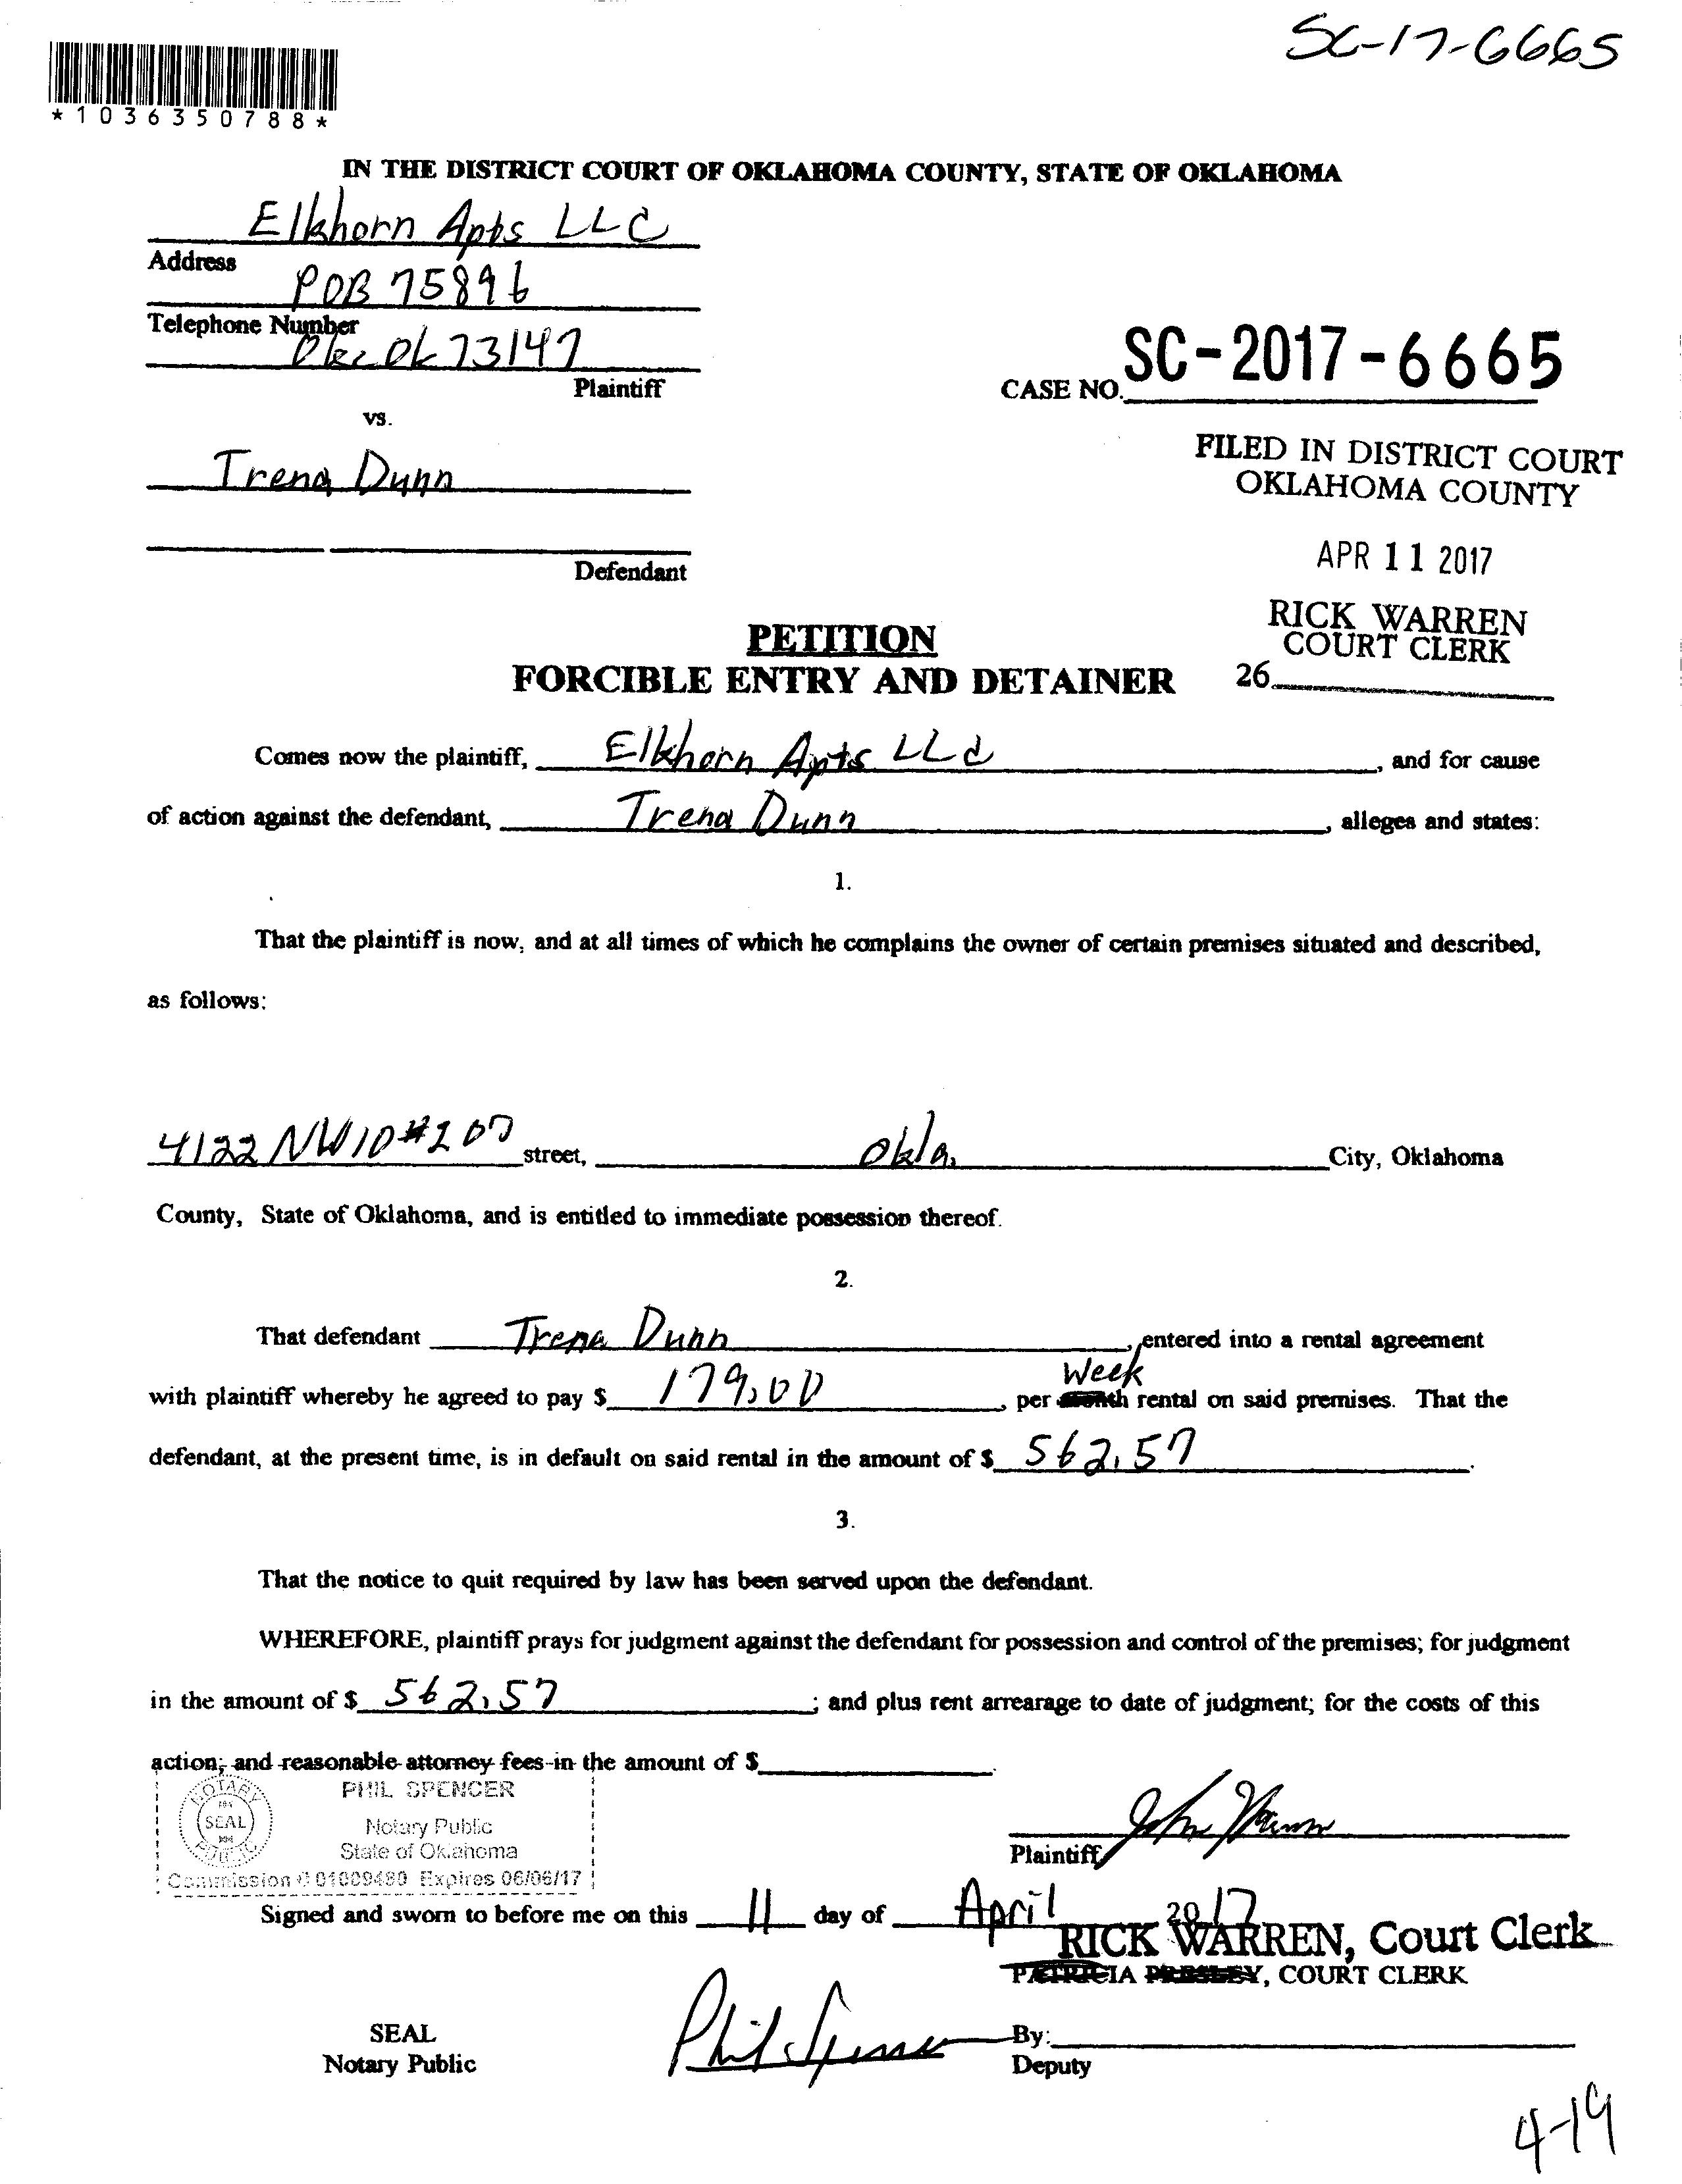 SC-17-6665
*1036350788*
IN THE DISTRICT COURT OF OKLAHOMA COUNTY, STATE OF OKLAHOMA
Elkhorn Apts LLC
Address
POB 75896
Telephone Number
Okc Ok 73147
Plaintiff
CASE NO. SC-2017-6665
vs.
FILED IN DISTRICT COURT
OKLAHOMA COUNTY
Trena Dunn
APR 11 2017
Defendant
RICK WARREN
COURT CLERK
26
PETITION
FORCIBLE ENTRY AND DETAINER
Comes now the plaintiff, Elkhorn Apts LLC, and for cause
of action against the defendant, Trena Dunn, alleges and states:
1.
That the plaintiff is now, and at all times of which he complains the owner of certain premises situated and described,
as follows:
4122 NW 10 #207 street, Okla. City, Oklahoma
County, State of Oklahoma, and is entitled to immediate possession thereof.
2.
That defendant Trena Dunn, entered into a rental agreement
Week
with plaintiff whereby he agreed to pay $ 179.00, per month rental on said premises. That the
defendant, at the present time, is in default on said rental in the amount of $ 562.57.
3.
That the notice to quit required by law has been served upon the defendant.
WHEREFORE, plaintiff prays for judgment against the defendant for possession and control of the premises; for judgment
in the amount of $ 562.57; and plus rent arrearage to date of judgment; for the costs of this
action; and reasonable attorney fees in the amount of $.
NOTARY
SEAL
PUBLIC
PHIL SPENCER
Notary Public
State of Oklahoma
Commission # 01009480 Expires 06/06/17
Plaintiff
Signed and sworn to before me on this 11 day of April 2017
RICK WARREN, Court Clerk
PATRICIA PRESLEY, COURT CLERK
SEAL
Notary Public
Phil Spencer
By:
Deputy
4-19